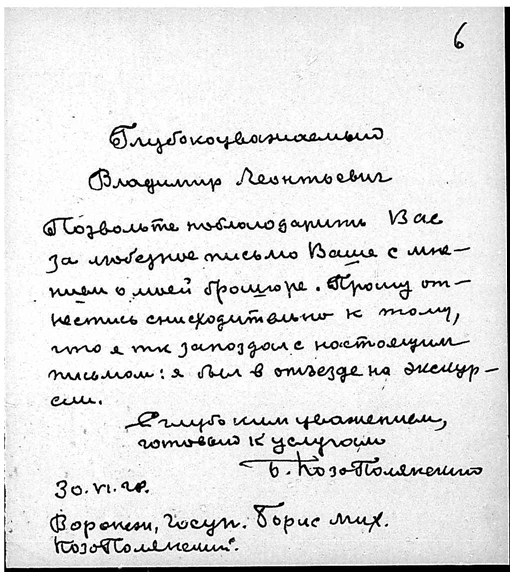 6
Глубокоуважаемый
Владимир Леонтьевич
Позвольте поблагодарить Вас
за любезное письмо Ваше с мне-
нием о моей брошюре. Прошу от-
нестись снисходительно к тому,
что я так запоздал с настоящим
письмом: я был в отъезде на экскур-
сии.
С глубоким уважением,
готовый к услугам
Б. КозоПолянский
30.VI.28.
Воронеж, Госун. Борис Мих.
КозоПолянский.